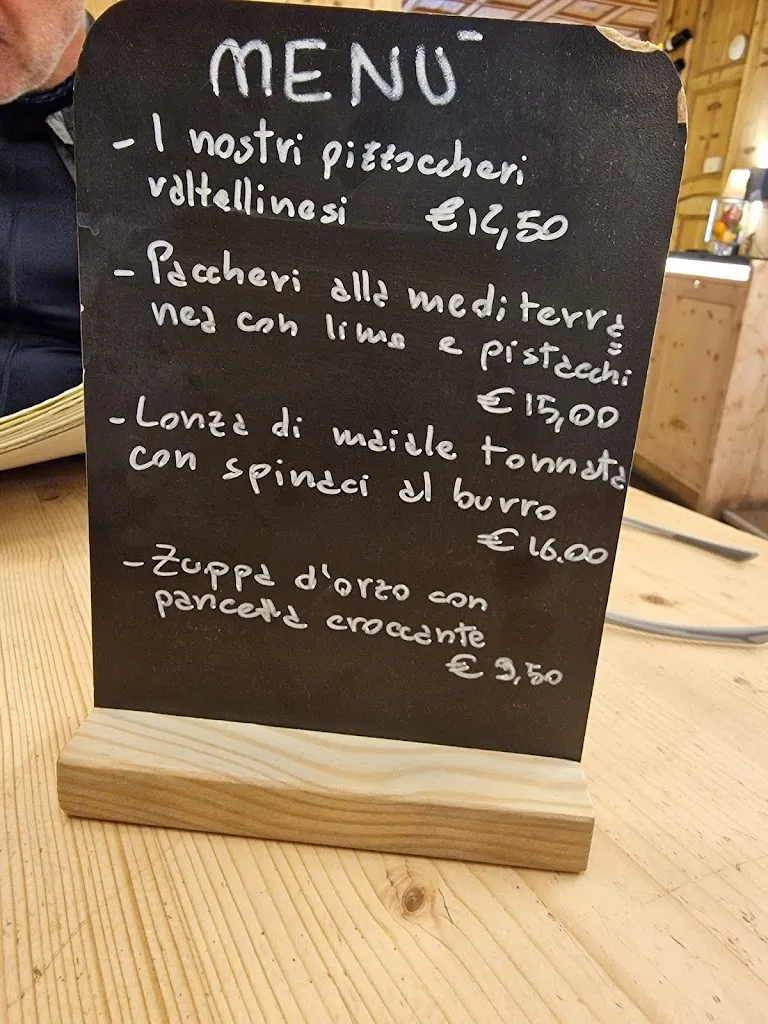 MENÙ
- I nostri pizzoccheri
valtellinesi €12,50
- Paccheri alla mediterra=
nea con lime e pistacchi
€15,00
- Lonza di maiale tonnata
con spinaci al burro
€16.00
- Zuppa d'orzo con
pancetta croccante
€9,50